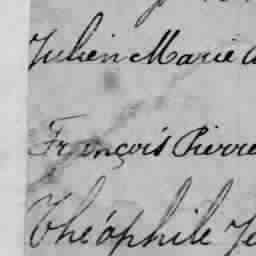 Julien Marie
François Pierre
Théophile